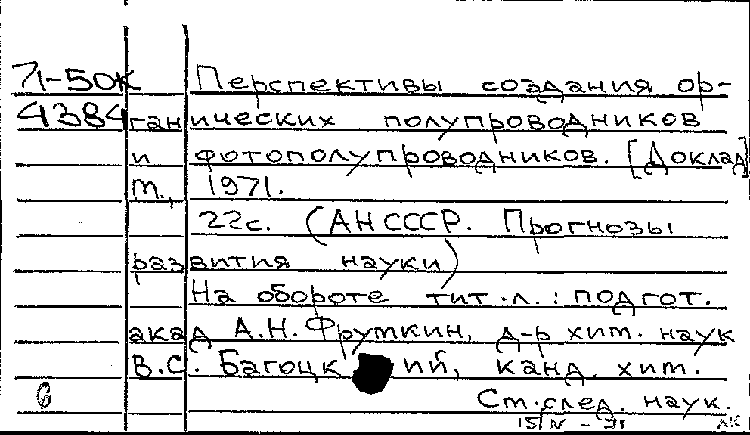 71-50К Перспективы создания ор-
4384 ганических полупроводников
и фотополупроводников. [Доклад]
М., 1971.
22с. (АН СССР. Прогнозы
развития науки)
На обороте тит.л.: подгот.
акад А.Н. Фрумкин, д-р хим. наук
В.С. Багоцкий, канд. хим.
Ст.след. наук.
15/IV-71